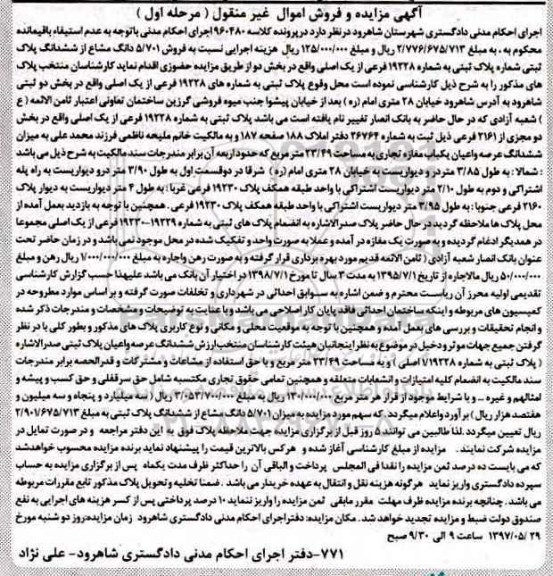 آگهی مزایده و فروش اموال غیر منقول ( مرحله اول )
اجرای احکام مدنی دادگستری شهرستان شاهرود در نظر دارد در پرونده کلاسه ۹۶۰۴۸۰ اجرای احکام مدنی با توجه به عدم استیفاء باقیمانده
محکوم به ، به مبلغ ۲/۷۷۶/۶۷۵/۷۱۳ ریال و مبلغ ۱۲۵/۰۰۰/۰۰۰ ریال هزینه اجرایی نسبت به فروش ۵/۷۰۱ دانگ مشاع از ششدانگ پلاک
ثبتی شماره پلاک ثبتی به شماره ۱۹۲۲۸ فرعی از یک اصلی واقع در بخش دو از طریق مزایده حضوری اقدام نماید کارشناسان منتخب پلاک
های مذکور را به شرح ذیل کارشناسی نموده است محل وقوع پلاک ثبتی به شماره های ۱۹۲۲۸ فرعی از یک اصلی واقع در بخش دو ثبتی
شاهرود به آدرس شاهرود خیابان ۲۸ متری امام (ره) بعد از خیابان پیشوا جنب میوه فروشی گرزین ساختمان تعاونی اعتبار ثامن الائمه ( ع
) شعبه آزادی که در حال حاضر به بانک انصار تغییر نام یافته است می باشد پلاک ثبتی به شماره ۱۹۲۲۸ فرعی از یک اصلی واقع در بخش
دو مجزی از ۲۱۶۱ فرعی ذیل ثبت به شماره ۳۶۷۶۴ دفتر املاک ۱۸۸ صفحه ۱۸۷ و به مالکیت خانم ملیحه ناظمی فرزند محمد علی به میزان
ششدانگ عرصه و اعیان یکباب مغازه تجاری به مساحت ۲۳/۴۹ متر مربع که حدود اربعه آن برابر مندرجات سند مالکیت به شرح ذیل می باشد
: شمالا: به طول ۳/۸۵ متر در و دیواریست به خیابان ۲۸ متری امام (ره) شرقا در دو قسمت اول به طول ۳/۹۰ متر در و دیواریست به راه پله
اشتراکی و دوم به طول ۲/۱۰ متر دیواریست اشتراکی با واحد طبقه همکف پلاک ۱۹۲۳۰ فرعی غربا: به طول ۴ متر دیواریست به دیوار پلاک
۲۱۶۰ فرعی جنوبا: به طول ۳/۹۵ متر دیواریست اشتراکی با واحد طبقه همکف پلاک ۱۹۲۳۰ فرعی . همچنین با توجه به بازدید بعمل آمده از
محل پلاک ها ملاحظه گردید در حال حاضر پلاک صدرالاشاره به انضمام پلاک های ثبتی به شماره ۱۹۲۲۹-۱۹۲۳۰ فرعی از یک اصلی مجموعا
در همدیگر ادغام گردیده و به صورت یک مغازه در آمده و عملا به صورت واحد و تفکیک شده در محل موجود نمی باشد و در زمان حاضر تحت
عنوان بانک انصار شعبه آزادی ( ثامن الائمه قدیم مورد بهره برداری قرار گرفته و به صورت رهن واجاره به مبلغ ۱/۰۰۰/۰۰۰/۰۰۰ ریال رهن و مبلغ
۵۰/۰۰۰/۰۰۰ ریال مال الاجاره از تاریخ ۱۳۹۵/۷/۱ به مدت ۳ سال تا مورخ ۱۳۹۸/۷/۱ در اختیار آن بانک می باشد علیهذا حسب گزارش کارشناسی
تقدیمی اولیه محرز آن ریاست محترم و ضمن اشاره به سوابق احداثی در شهرداری و تخلفات صورت گرفته و بر اساس موارد مطروحه در
کمیسیون های مربوطه و اینکه ساختمان احداثی فاقد پایان کار اصلاحی می باشد و با عنایت به توضیحات و مشخصات و مندرجات ذکر شده
و انجام تحقیقات و بررسی های بعمل آمده و همچنین با توجه به موقعیت محلی و مکانی و نوع کاربری پلاک های مذکور و بطور کلی با در نظر
گرفتن جمیع جهات موثر و دخیل در موضوع به نظر اینجانبان هیئت کارشناسان منتخب ارزش ششدانگ عرصه واعیان پلاک ثبتی صدرالاشاره
( پلاک ثبتی به شماره ۱/۱۹۲۲۸ اصلی ) و به مساحت ۲۳/۴۹ متر مربع و با حق استفاده از مشاعات و مشترکات و قدرالحصه برابر مندرجات
سند مالکیت به انضمام کلیه امتیازات و انشعابات متعلقه و همچنین تمامی حقوق تجاری مکتسبه شامل حق سرقفلی و حق کسب و پیشه و
امثالهم و غیره ... و با شرایط موجود از قرار هر متر مربع ۱۳۰/۰۰۰/۰۰۰ ریال به مبلغ ۳/۰۵۳/۷۰۰/۰۰۰ ریال ( سه میلیارد و پنجاه و سه میلیون و
هفتصد هزار ریال ) برآورد واعلام میگردد. که سهم مورد مزایده به میزان ۵/۷۰۱ دانگ مشاع از ششدانگ پلاک ثبتی به مبلغ ۲/۹۰۱/۶۷۵/۷۱۳
ریال تعیین میگردد. لذا طالبین می توانند ۵ روز قبل از برگزاری مزایده جهت ملاحظه پلاک فوق به این دفتر مراجعه و در صورت تمایل در
مزایده شرکت نمایند. مزایده از مبلغ کارشناسی آغاز شده و هرکس بالاترین قیمت را پیشنهاد نماید برنده مزایده محسوب خواهدشد
که می بایست ده درصد ثمن مزایده را نقدا فی المجلس پرداخت و الباقی آن را حداکثر ظرف مدت یکماه پس از برگزاری مزایده به حساب
سپرده دادگستری واریز نماید هرگونه هزینه نقل و انتقال به عهده خریدار می باشد . ضمنا تخلیه و تحویل پلاک مذکور تابع مقررات مربوطه
می باشد. چنانچه برنده مزایده ظرف مهلت مقرر مابقی ثمن مزایده را واریز ننماید ۱۰ درصد پرداختی پس از کسر هزینه های اجرایی به نفع
صندوق دولت ضبط و مزایده تجدید خواهد شد. مکان مزایده: دفتر اجرای احکام مدنی دادگستری شاهرود زمان مزایده:روز دو شنبه مورخ
۱۳۹۷/۰۵/۲۹ ساعت ۹ الی ۹/۳۰ صبح
۷۷۱-دفتر اجرای احکام مدنی دادگستری شاهرود- علی نژاد